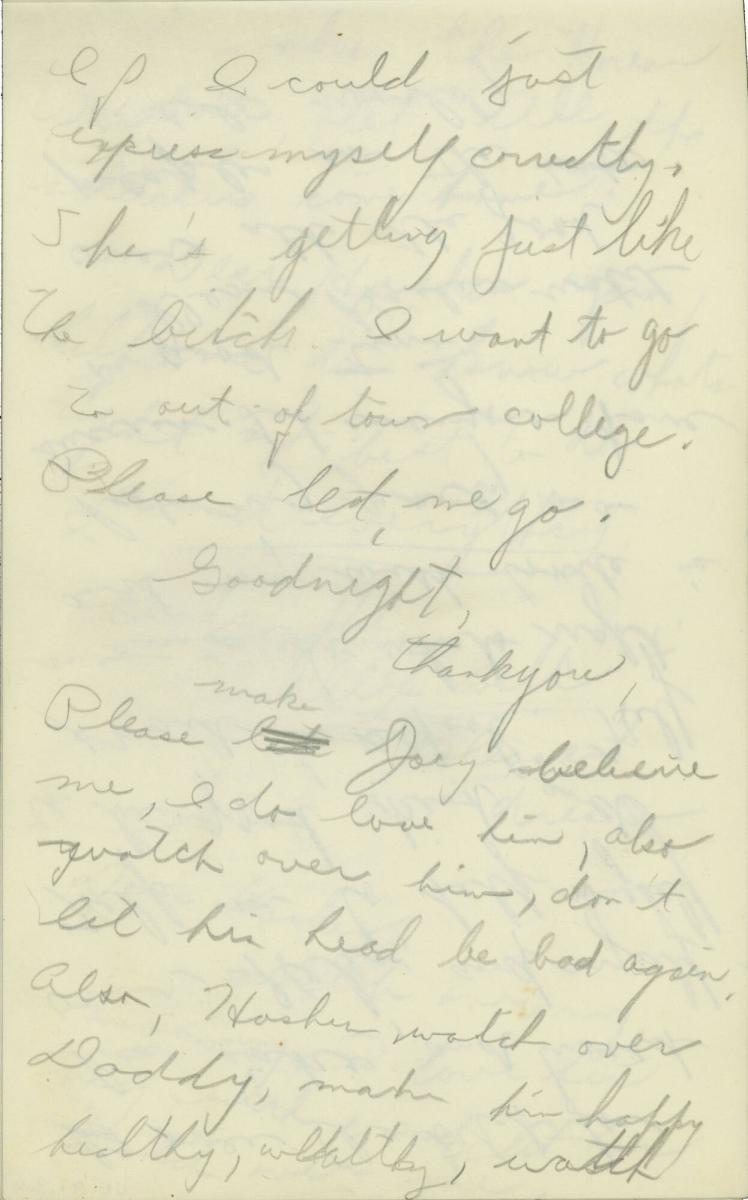 If I could just
express myself correctly.
She's getting just like
the bitch. I want to go
to out of town college.
Please let, me go.
Goodnight,
thankyou,
make
Please let Joey believe
me, I do love him, also
watch over him, don't
let his head be bad again.
Also, Hashem watch over
Daddy, make him happy
healthy, wealthy, watch